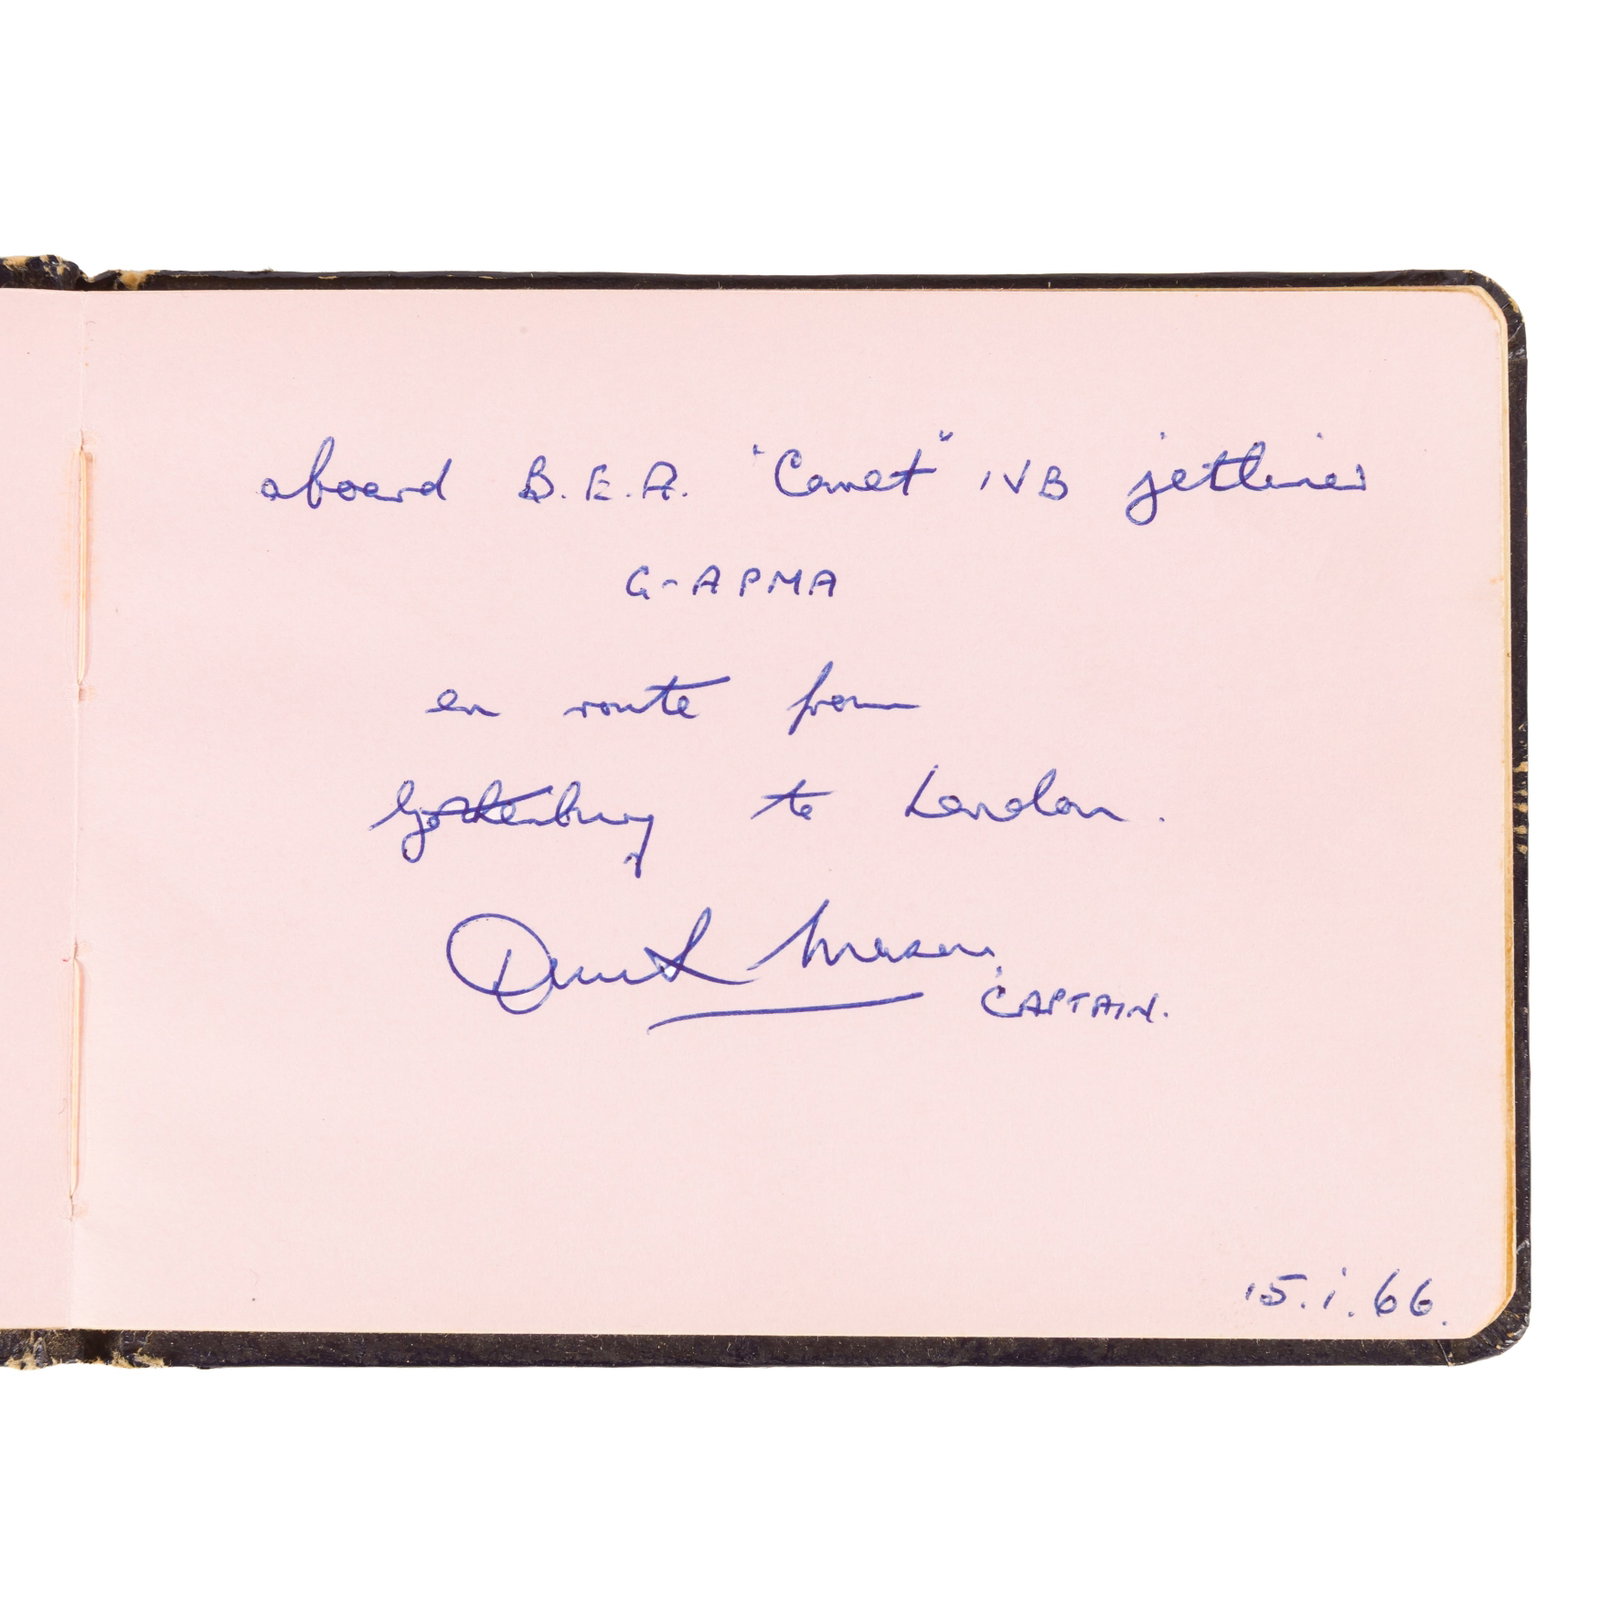 aboard B.E.A. "Comet" IVB jetliner
G-APMA
en route from
Gothenburg to London.
Mason.
CAPTAIN.
15.i.66.